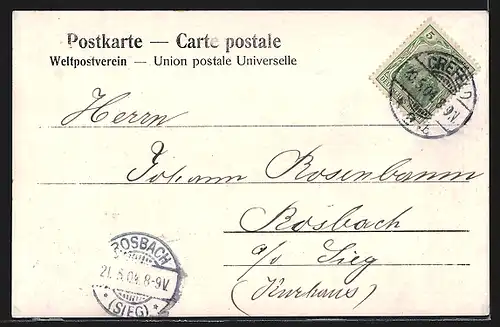 Postkarte — Carte postale
Weltpostverein — Union postale Universelle
5
CREFELD
5.04. 8-9V.
Herrn
Johann Rosenbaum
Rosbach
a/o Sieg
(Kurhaus)
ROSBACH
21.5.04. 8-9V.
* (SIEG) *